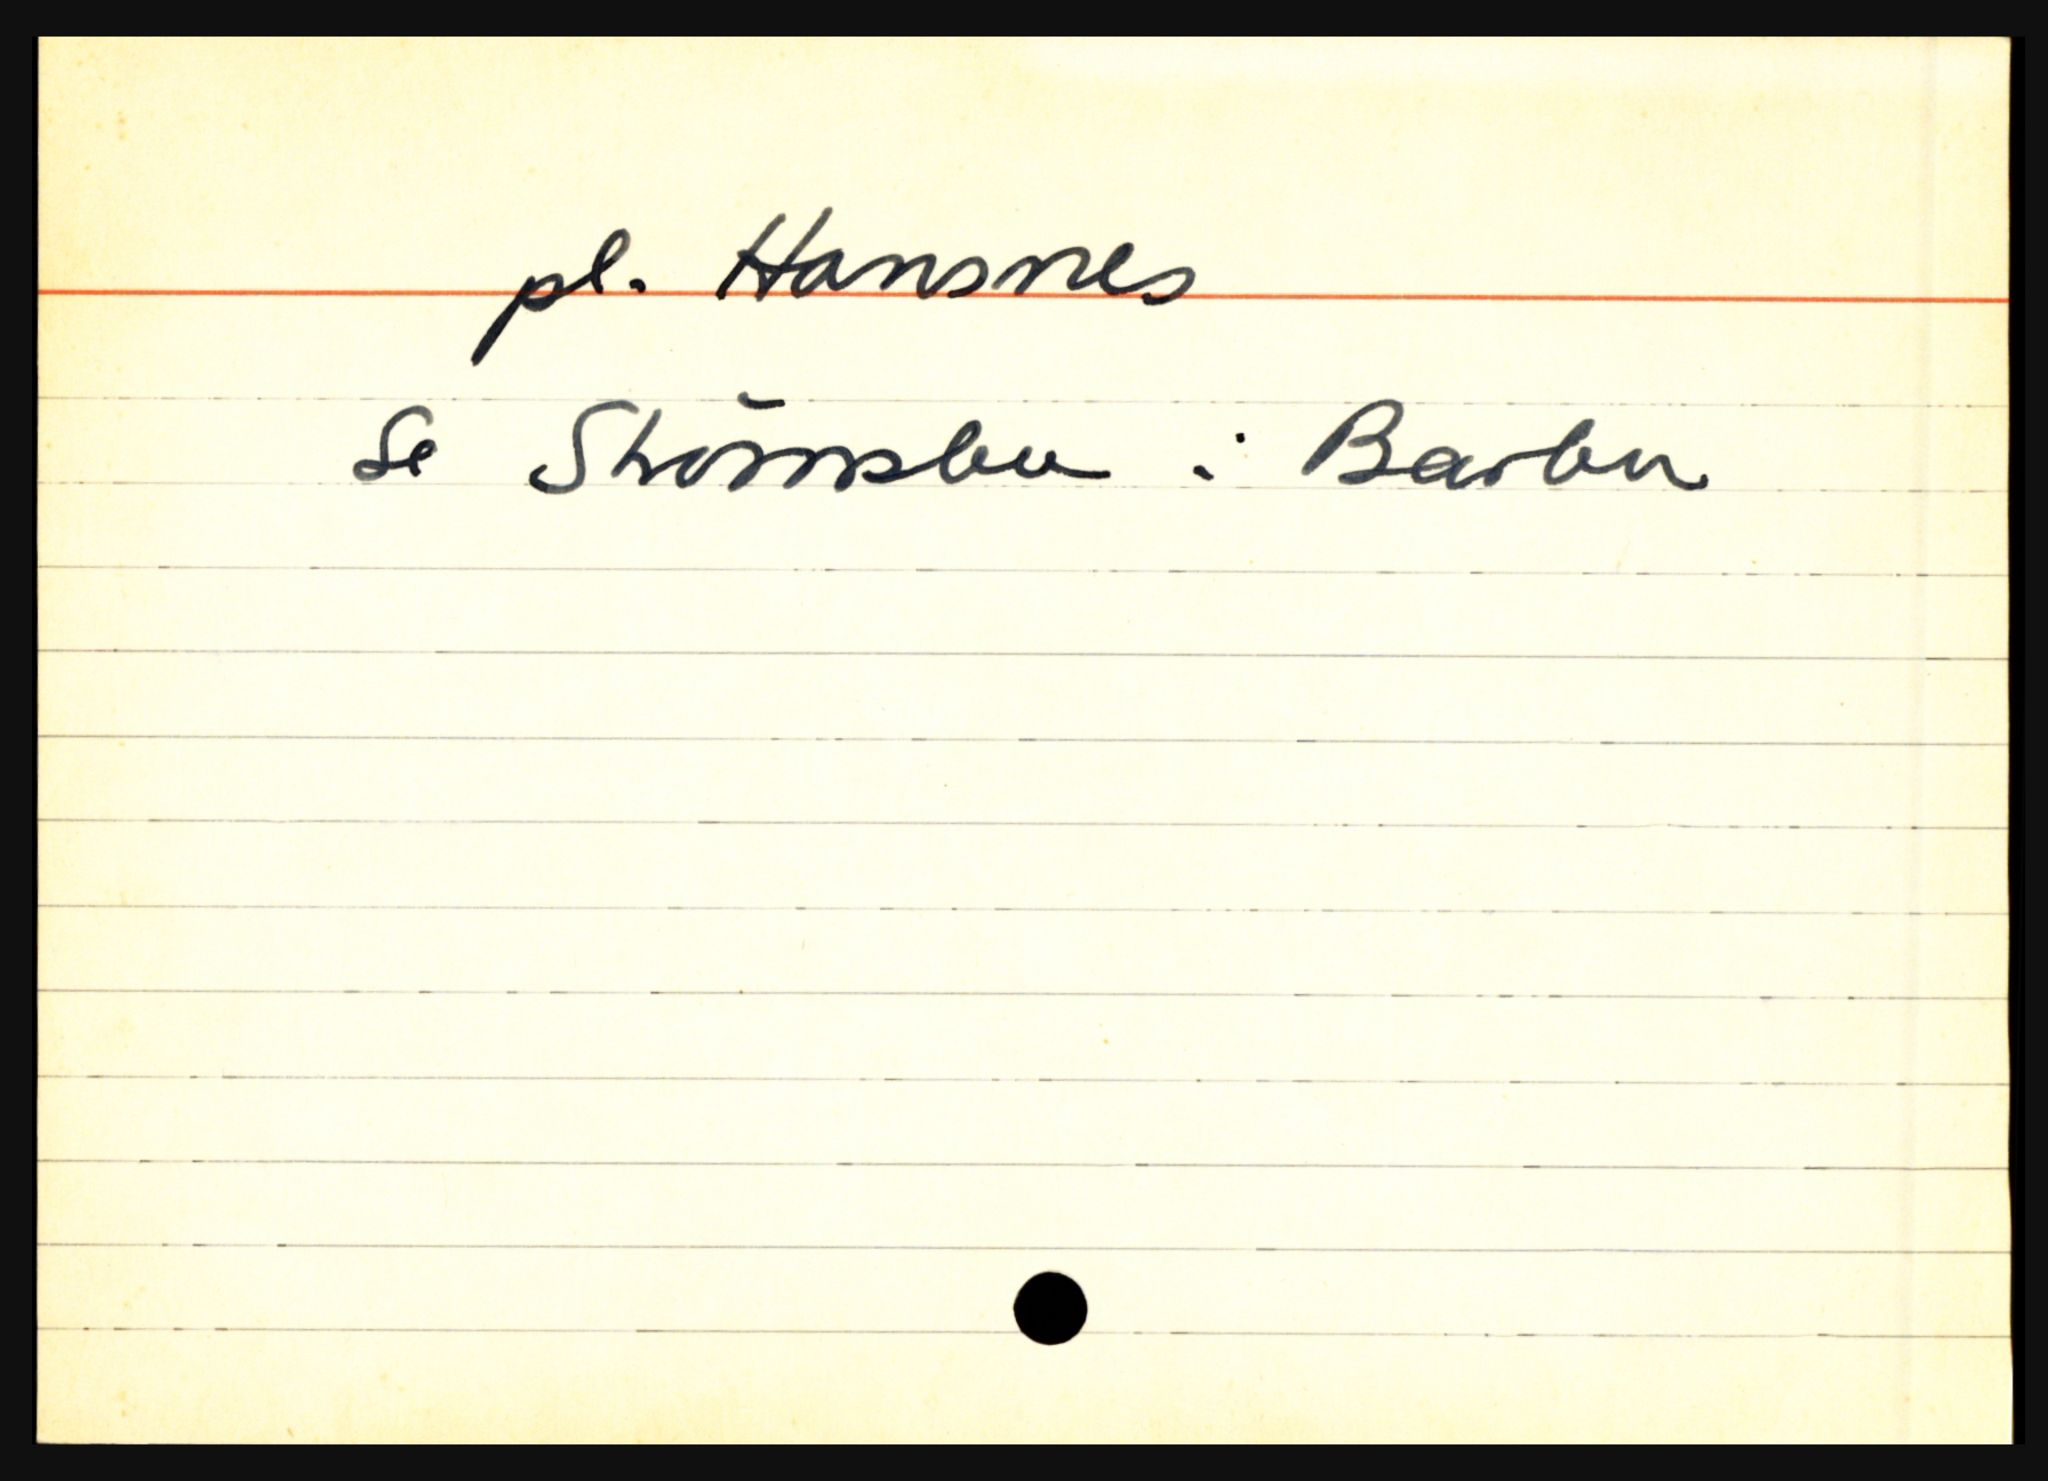 pl. Hansnes
Se Strömsbu i Barbu